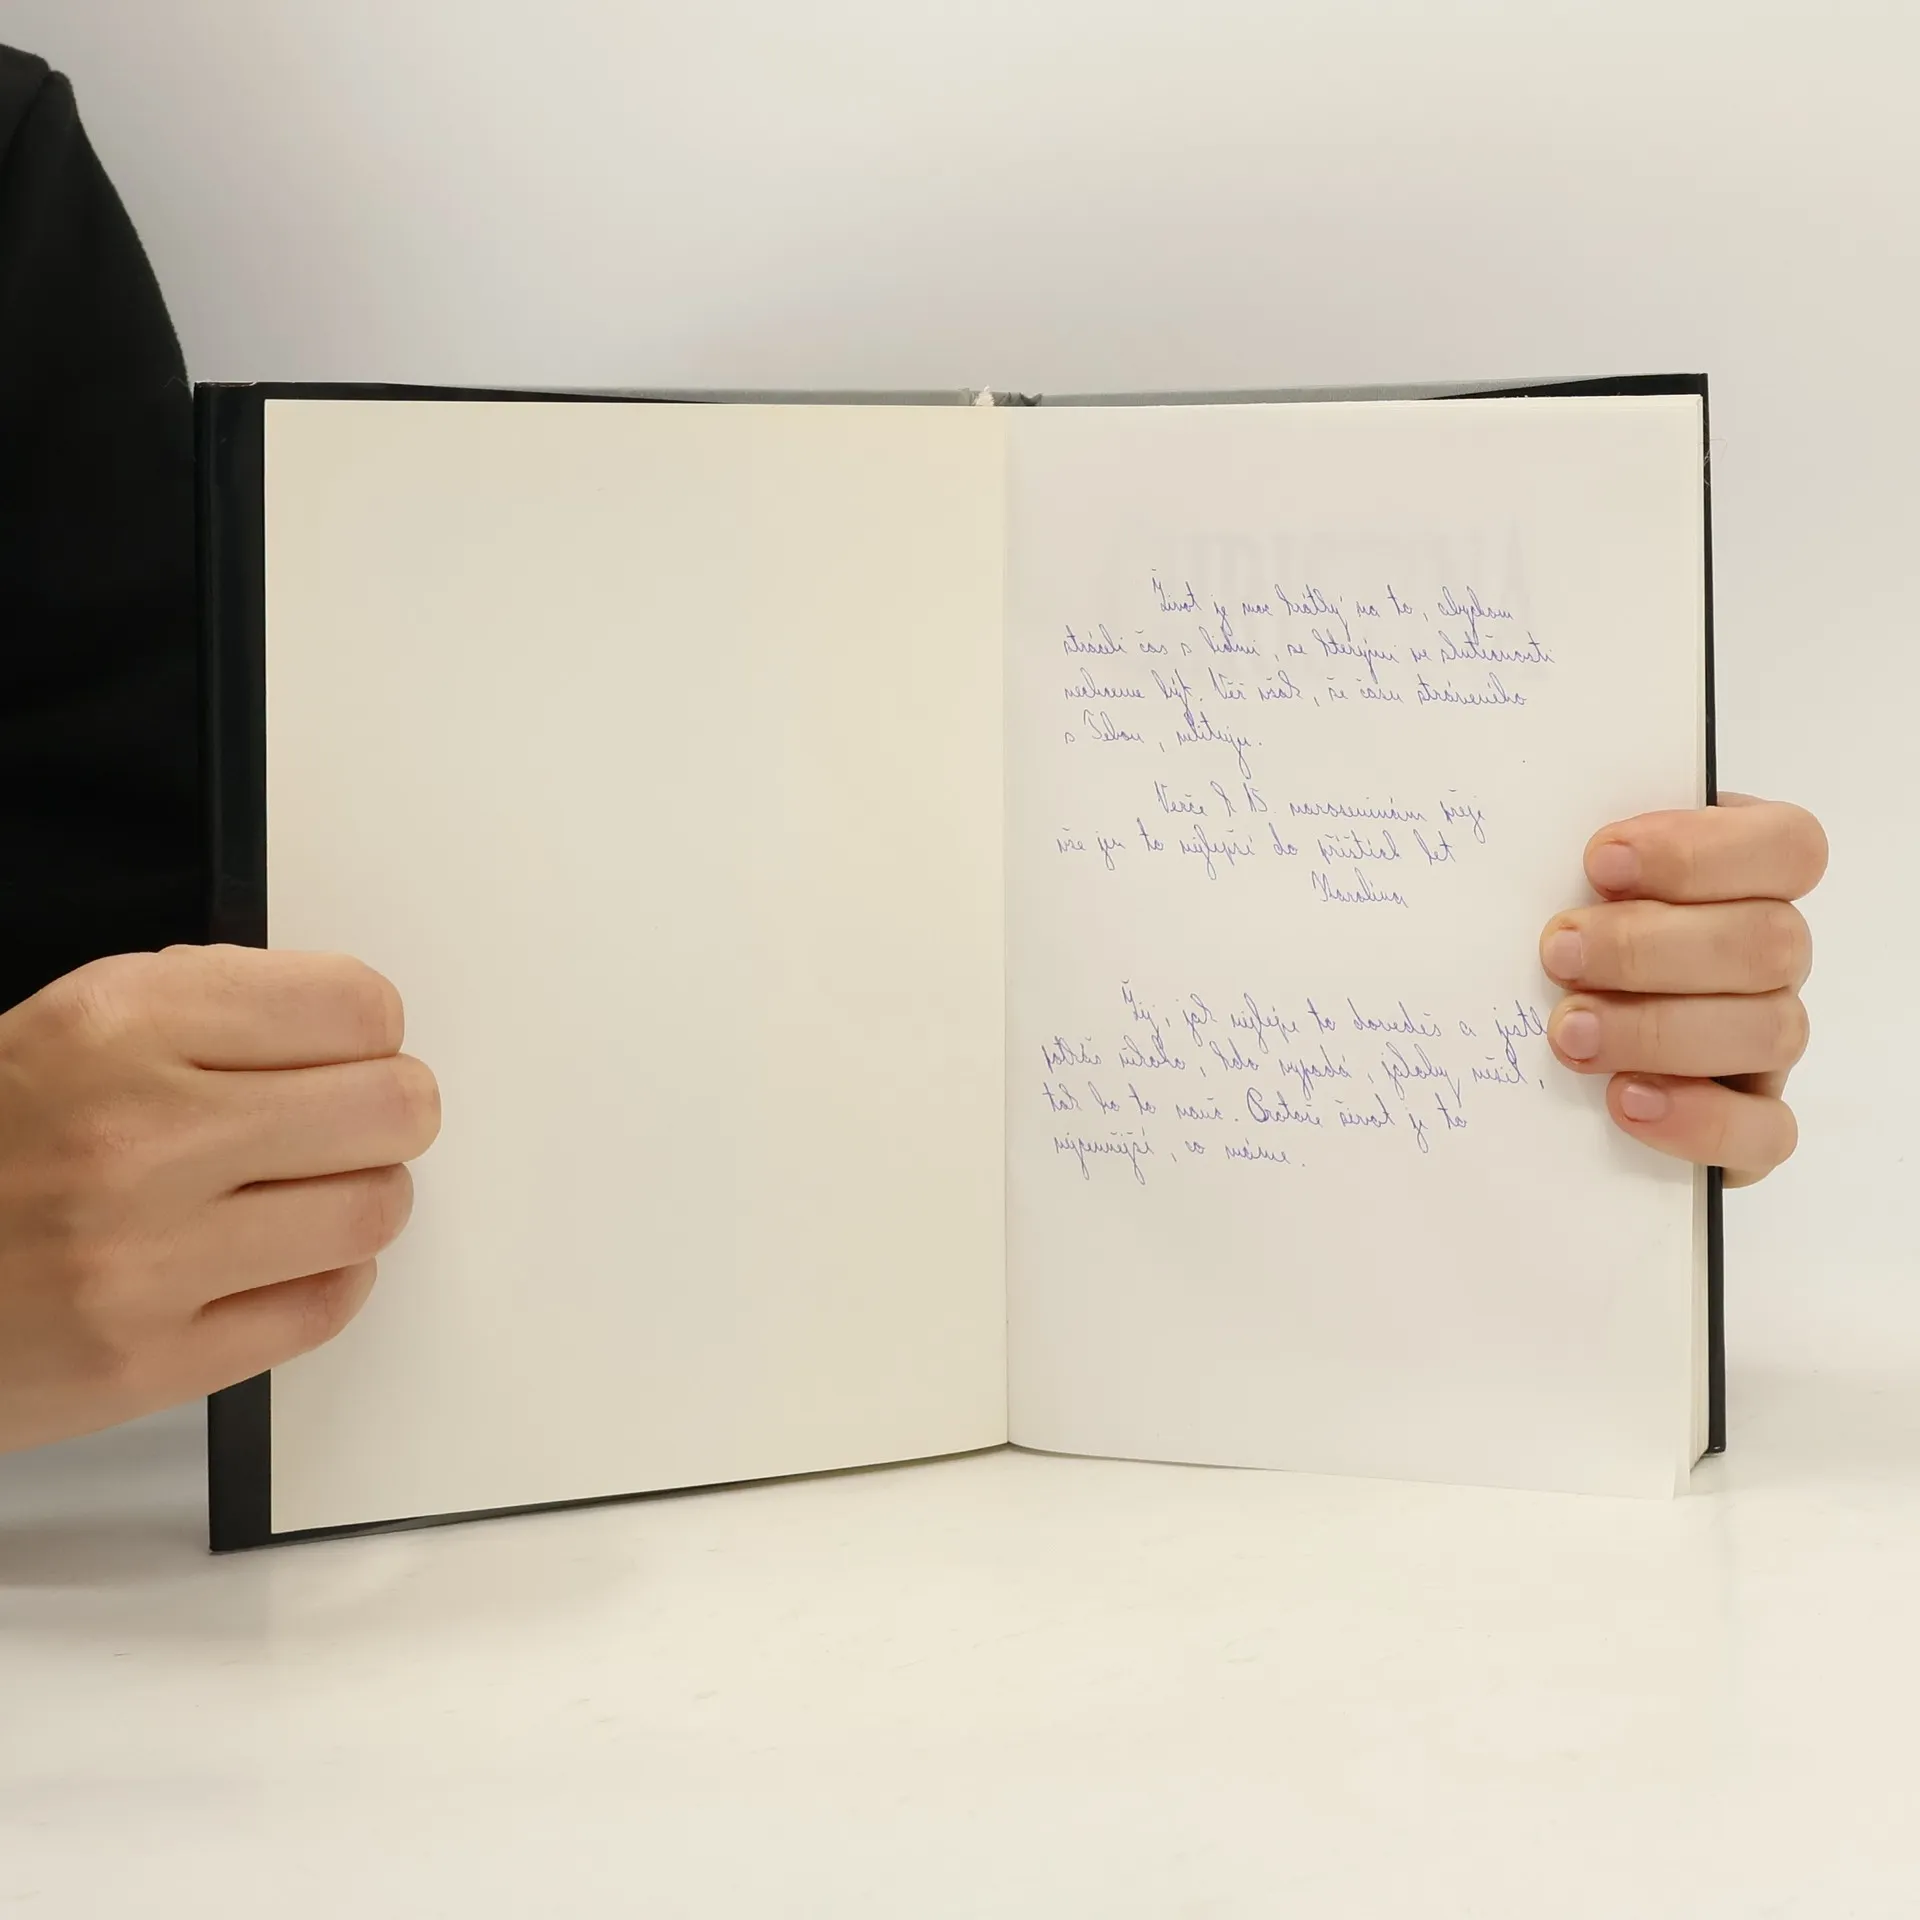 Život je moc krátký na to, abychom
strávili čas s lidmi, se kterými ve skutečnosti
nechceme být. Věř však, že času stráveného
s Tebou, nelituju.
Verče k 15. narozeninám přeji
vše jen to nejlepší do příštích let
Karolína
Žij, jak nejlépe to dovedeš a jestli
potkáš někoho, kdo vypadá, jakoby nežil,
tak ho to nauč. Protože život je to
nejcennější, co máme.